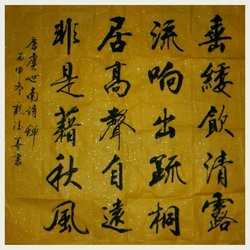 垂緌飲清露
流响出疏桐
居高聲自遠
非是藉秋風
唐虞世南詩蟬